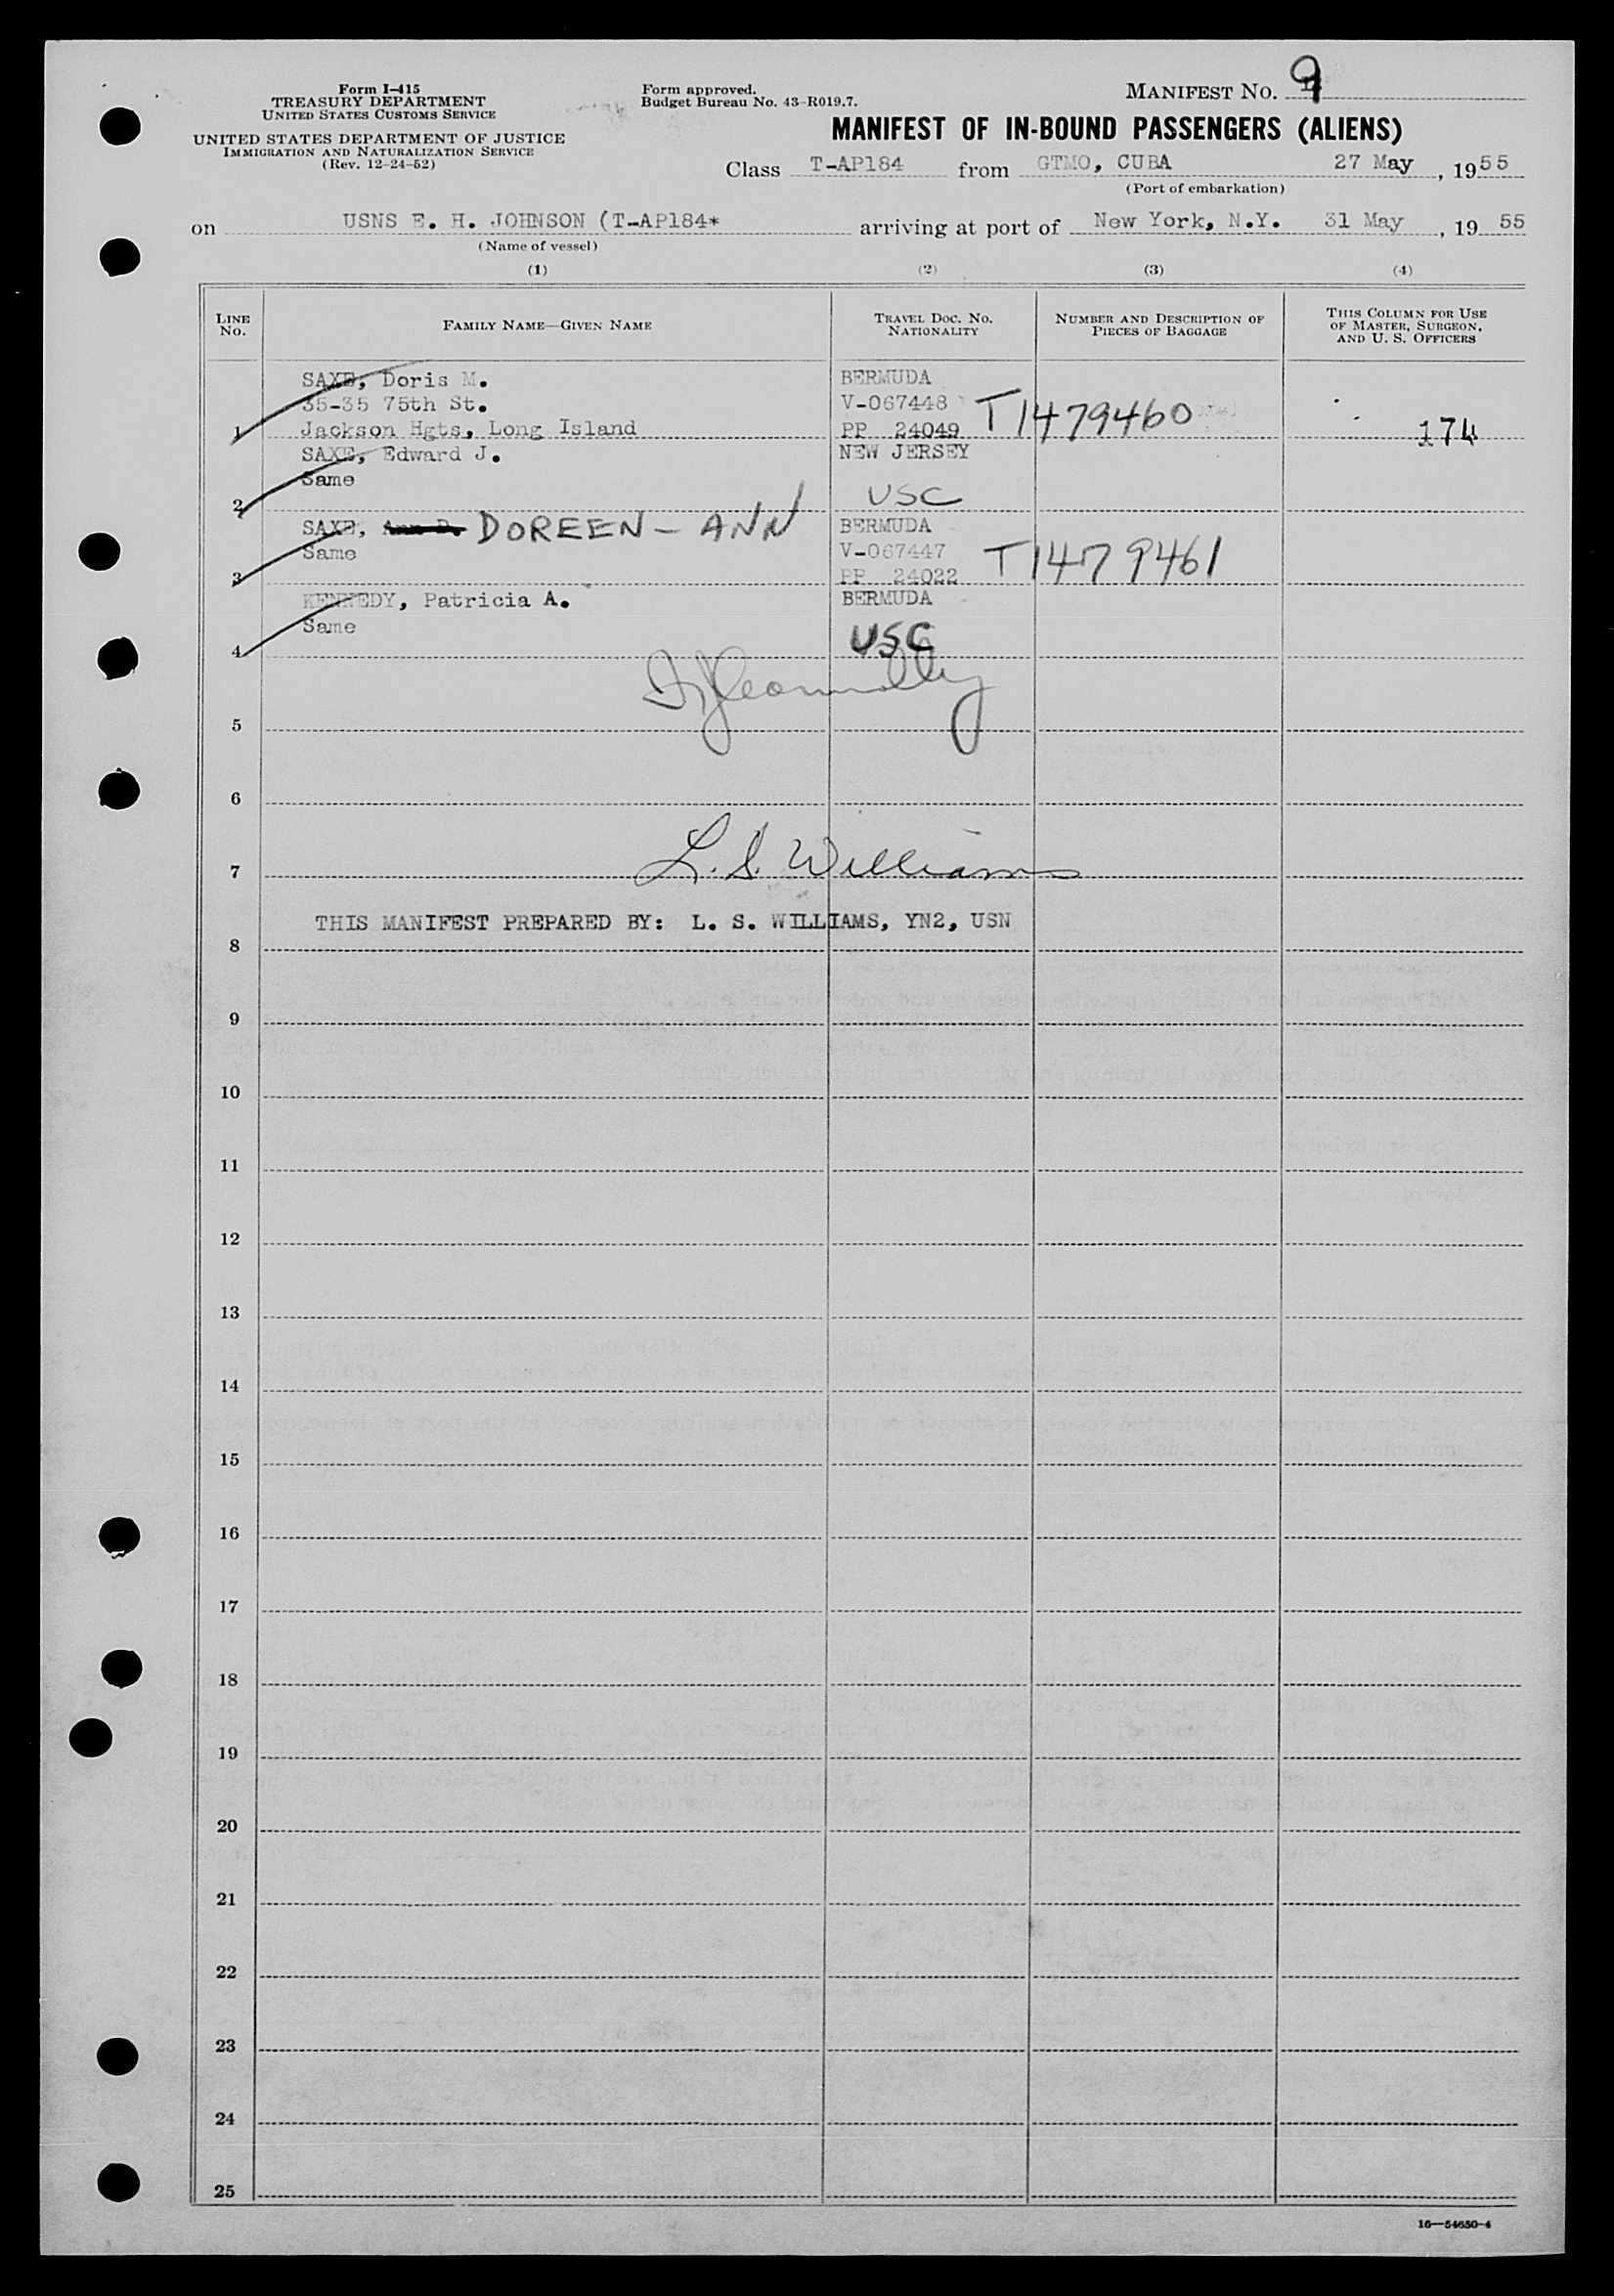 Form I-415
TREASURY DEPARTMENT
UNITED STATES CUSTOMS SERVICE
UNITED STATES DEPARTMENT OF JUSTICE
IMMIGRATION AND NATURALIZATION SERVICE
(Rev. 12-24-52)
Form approved.
Budget Bureau No. 43-R019.7.
MANIFEST NO. 9
MANIFEST OF IN-BOUND PASSENGERS (ALIENS)
Class T-AP184 from GTMO, CUBA 27 May, 1955
(Port of embarkation)
on USNS E. H. JOHNSON (T-AP184* arriving at port of New York, N.Y. 31 May, 19 55
(Name of vessel)
(1) (2) (3) (4)
LINE NO. FAMILY NAME—GIVEN NAME TRAVEL DOC. NO. NATIONALITY NUMBER AND DESCRIPTION OF PIECES OF BAGGAGE THIS COLUMN FOR USE OF MASTER, SURGEON, AND U. S. OFFICERS
SAXE, Doris M. BERMUDA
35-35 75th St. V-067448 T1479460
1 Jackson Hgts, Long Island PP 24049 174
SAXE, Edward J. NEW JERSEY
Same
2 USC
SAXE, Ann D. DOREEN - ANN BERMUDA
Same V-067447 T1479461
3 PP 24022
KENNEDY, Patricia A. BERMUDA
Same USC
4
5
6
7 L. S. Williams
THIS MANIFEST PREPARED BY: L. S. WILLIAMS, YN2, USN
8
9
10
11
12
13
14
15
16
17
18
19
20
21
22
23
24
25
16—54650-4